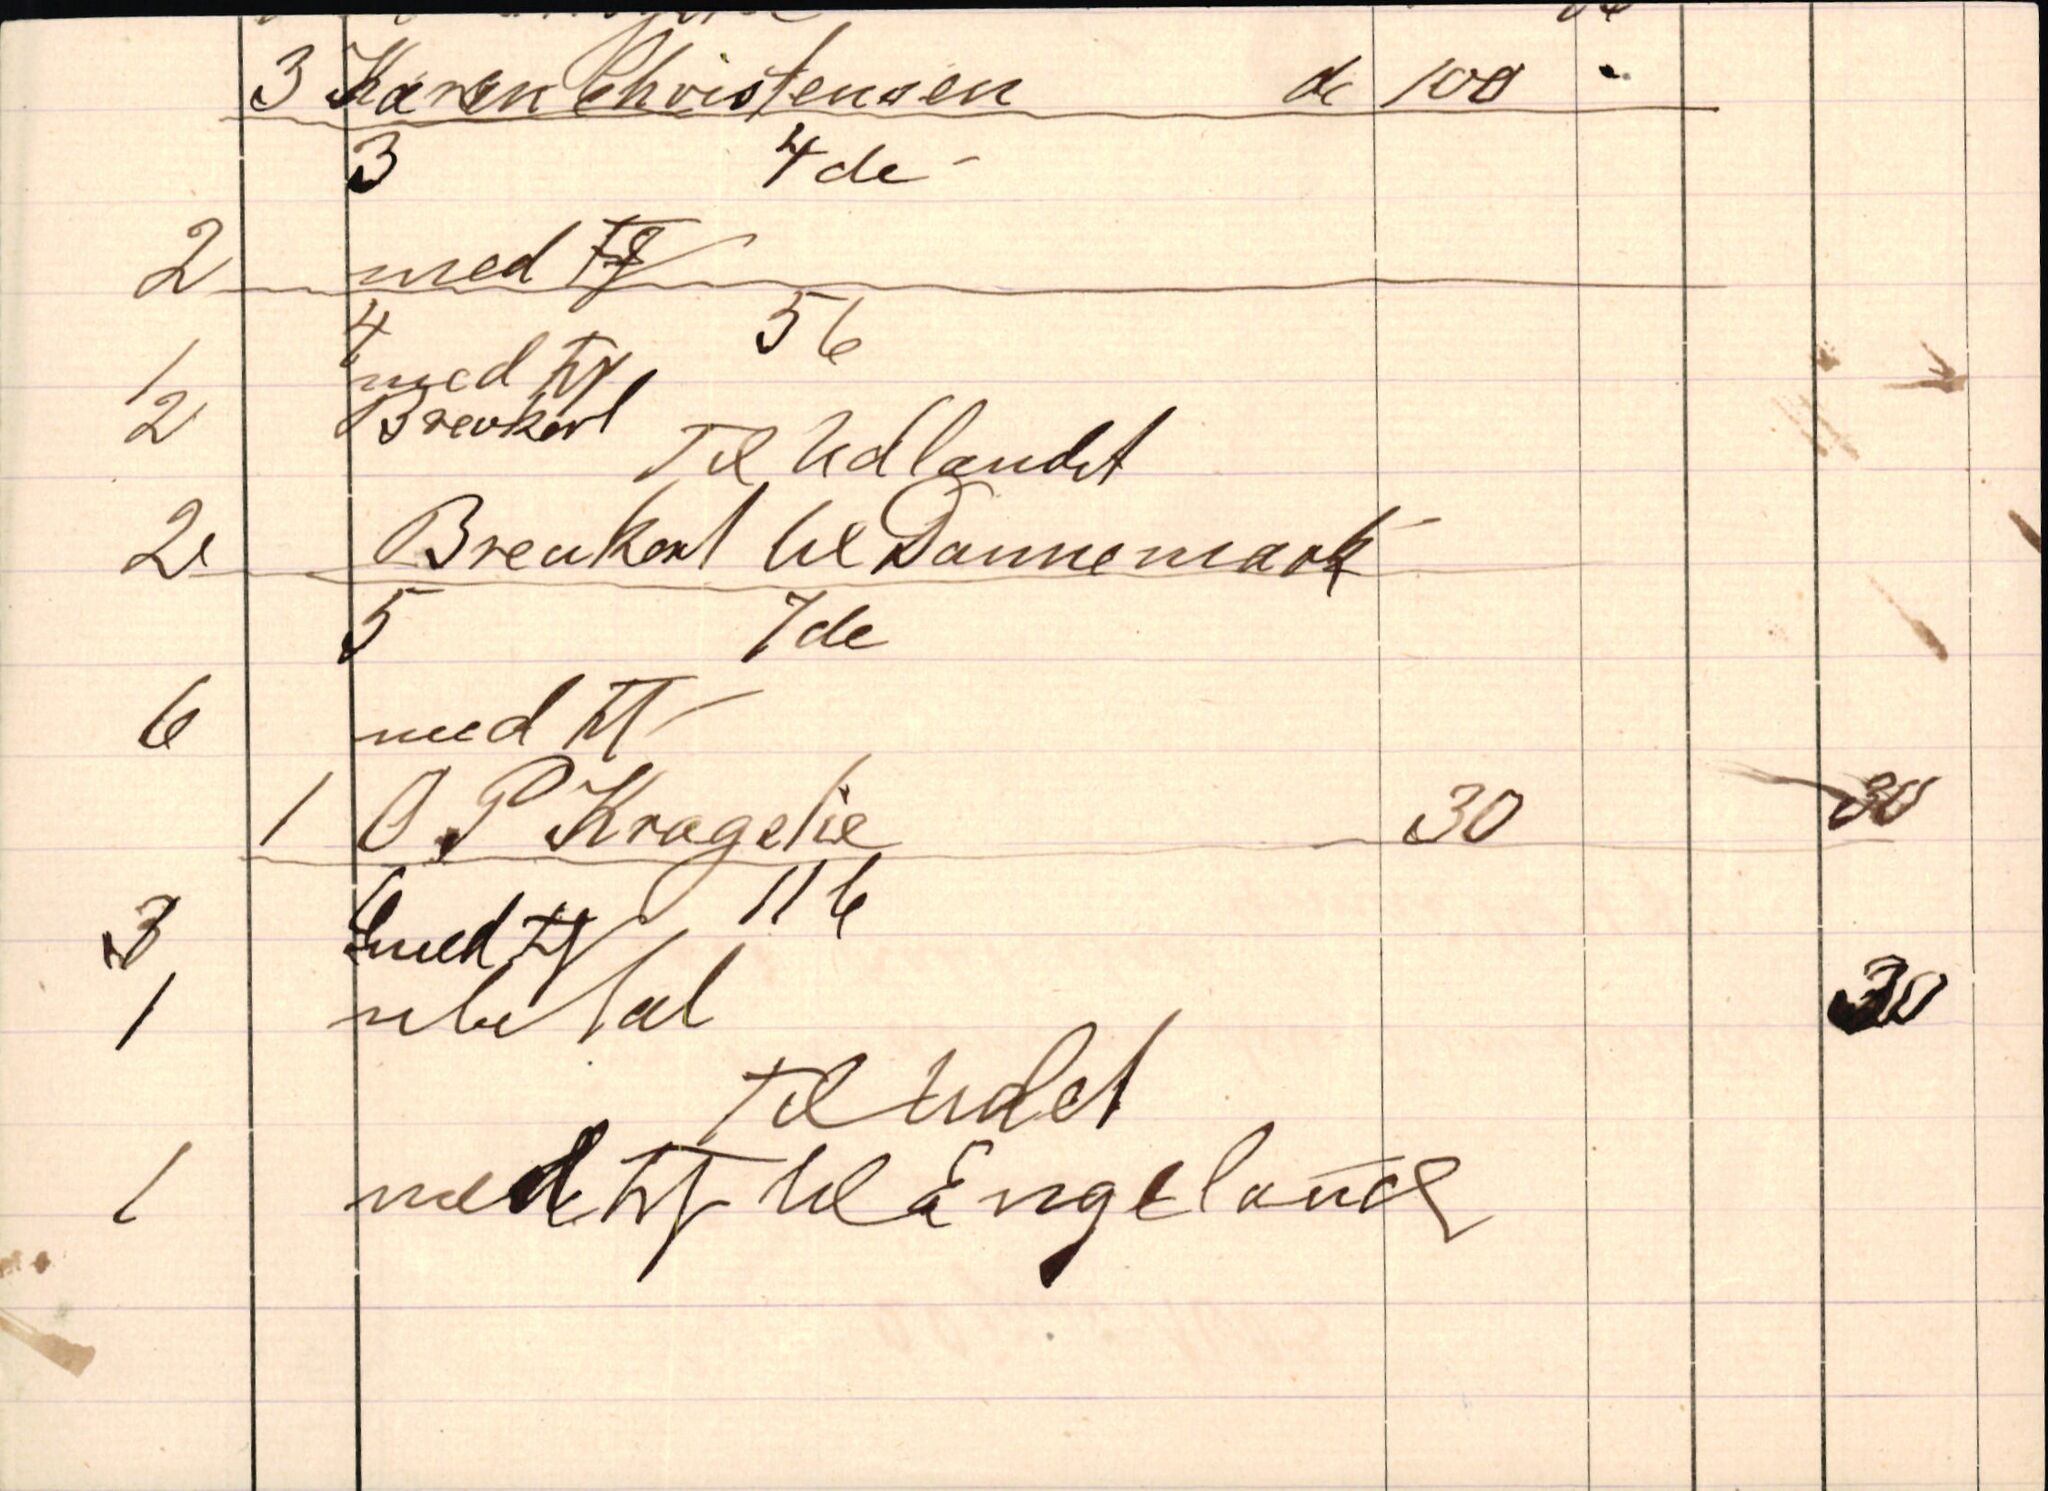 3 Karen Christensen do 100 -
3 4de
2 med
4 56
1 med
2 Brevkort
Til Udlandet
2 Brevkort til Dannemark
5 7de
6 med
1 O. P Kragelie 30 30
6 116
3 med
1 ubetal 30
Til Udet
1 med til Engeland